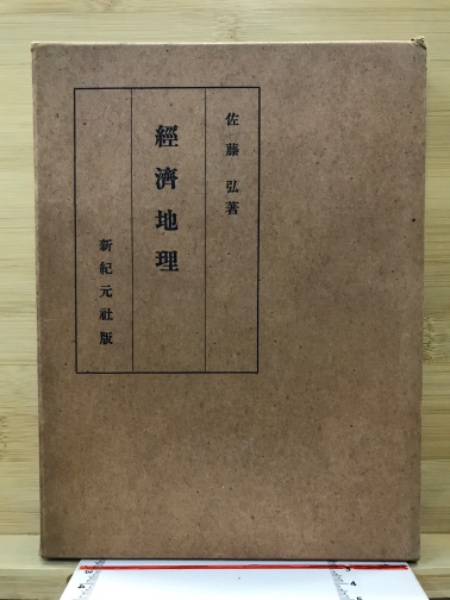 佐藤弘著
經濟地理
新紀元社版